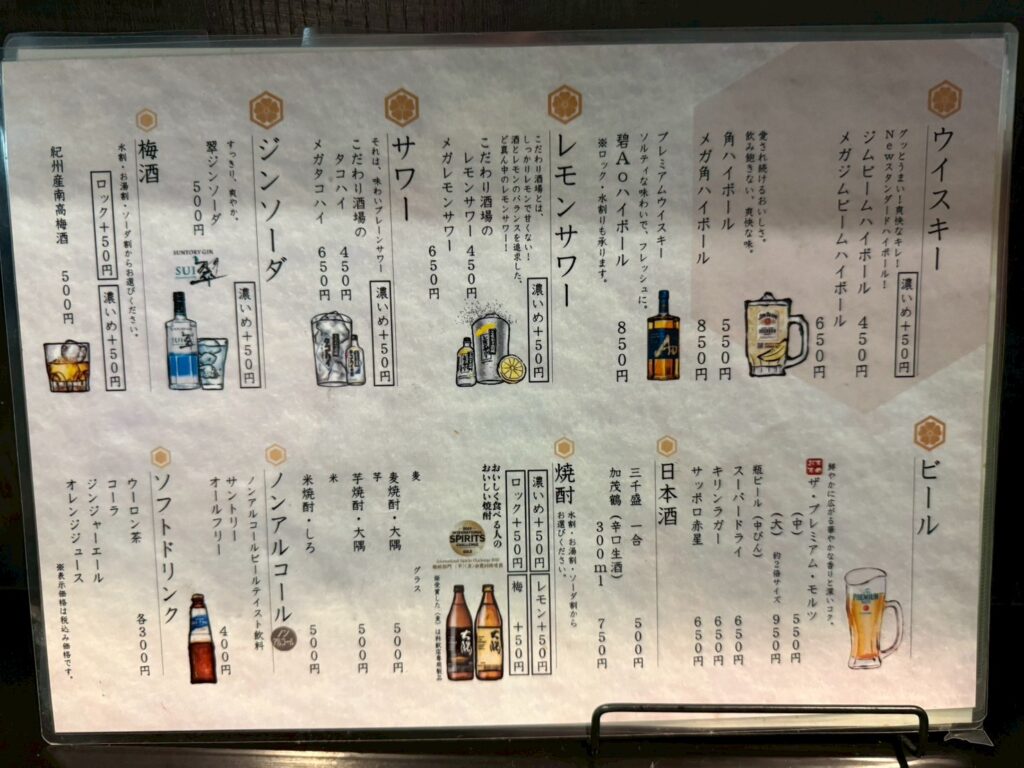 ウイスキー
グッとうまい！爽快なキレ！
Newスタンダードハイボール！
濃いめ＋50円
ジムビームハイボール 450円
メガジムビームハイボール 650円
愛され続けるおいしさ。
飲み飽きない、爽快な味。
角ハイボール 550円
メガ角ハイボール 850円
プレミアムウイスキー
ソルティな味わいで、フレッシュに。
碧Aoハイボール 850円
※ロック・水割りも承ります。
レモンサワー
こだわり酒場とは、
しっかりレモンで甘くない！
酒とレモンのバランスを追求した、
ど真ん中のレモンサワー！
濃いめ＋50円
こだわり酒場の
レモンサワー 450円
メガレモンサワー 650円
サワー
それは、味わいプレーンサワー
濃いめ＋50円
こだわり酒場の
タコハイ 450円
メガタコハイ 650円
ジンソーダ
すっきり、爽やか。
濃いめ＋50円
翠ジンソーダ 500円
SUNTORY GIN
SUI
翠
梅酒
水割・お湯割・ソーダ割からお選びください。
ロック＋50円
濃いめ＋50円
紀州産南高梅酒 500円
ビール
鮮やかに広がる華やかな香りと深いコク。
ザ・プレミアム・モルツ
（中） 550円
（大） 約2倍サイズ 950円
瓶ビール（中びん）
スーパードライ 650円
キリンラガー 650円
サッポロ赤星 650円
日本酒
三千盛 一合 500円
加茂鶴（辛口生酒）
300ml 750円
焼酎
水割・お湯割・ソーダ割から
お選びください。
濃いめ＋50円
レモン＋50円
ロック＋50円
梅 ＋50円
おいしく食べる人の
おいしい焼酎
SPIRITS
グラス
麦
麦焼酎・大隅 500円
芋
芋焼酎・大隅 500円
米
米焼酎・しろ 500円
ノンアルコール
ノンアルコールビールテイスト飲料
サントリー
オールフリー 400円
ソフトドリンク
ウーロン茶
コーラ
ジンジャーエール
オレンジジュース
各300円
※表示価格は税込み価格です。